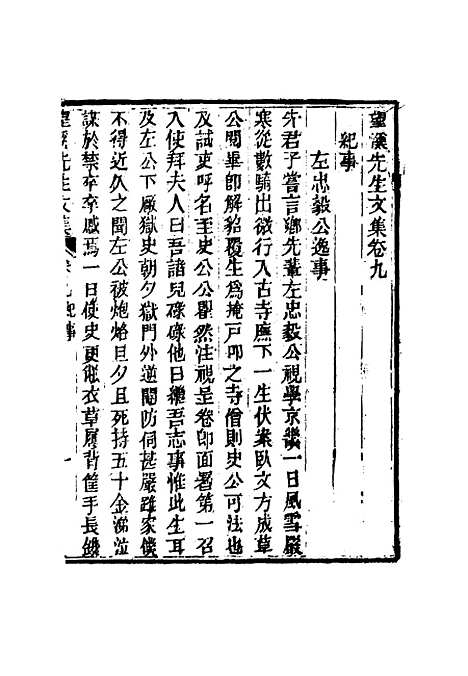 望溪先生文集卷九
紀事
左忠毅公逸事
先君子嘗言鄉先輩左忠毅公視學京畿一日風雪嚴
寒從數騎出微行入古寺廡下一生伏案臥文方成草
公閱畢即解貂覆生為掩戶叩之寺僧則史公可法也
及試吏呼名至史公公瞿然注視呈卷即面署第一召
入使拜夫人曰吾諸兒碌碌他日繼吾志事惟此生耳
及左公下廠獄史朝夕獄門外逆閹防伺甚嚴雖家僕
不得近久之聞左公被炮烙旦夕且死持五十金涕泣
謀於禁卒卒感焉一日使史更敝衣草屨背筐手長鑱
望溪先生文集 卷九紀事 一